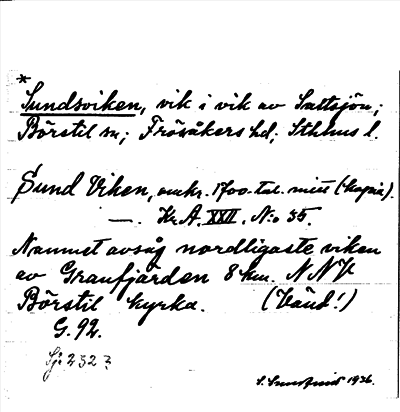 *
Sundsviken, vik i vik av Saltsjön;
Börstil sn; Frösåkers hd; Sthlms l.
Sund Viken, omkr. 1700-tal. mitt (kopia).
—. Kr.A. XXII. N:o 35.
Namnet avsåg nordligaste viken
av Granfjärden 8 km. NNV
Börstil kyrka. (Vänd!)
G. 92.
Sj: 232?
S. 1936.